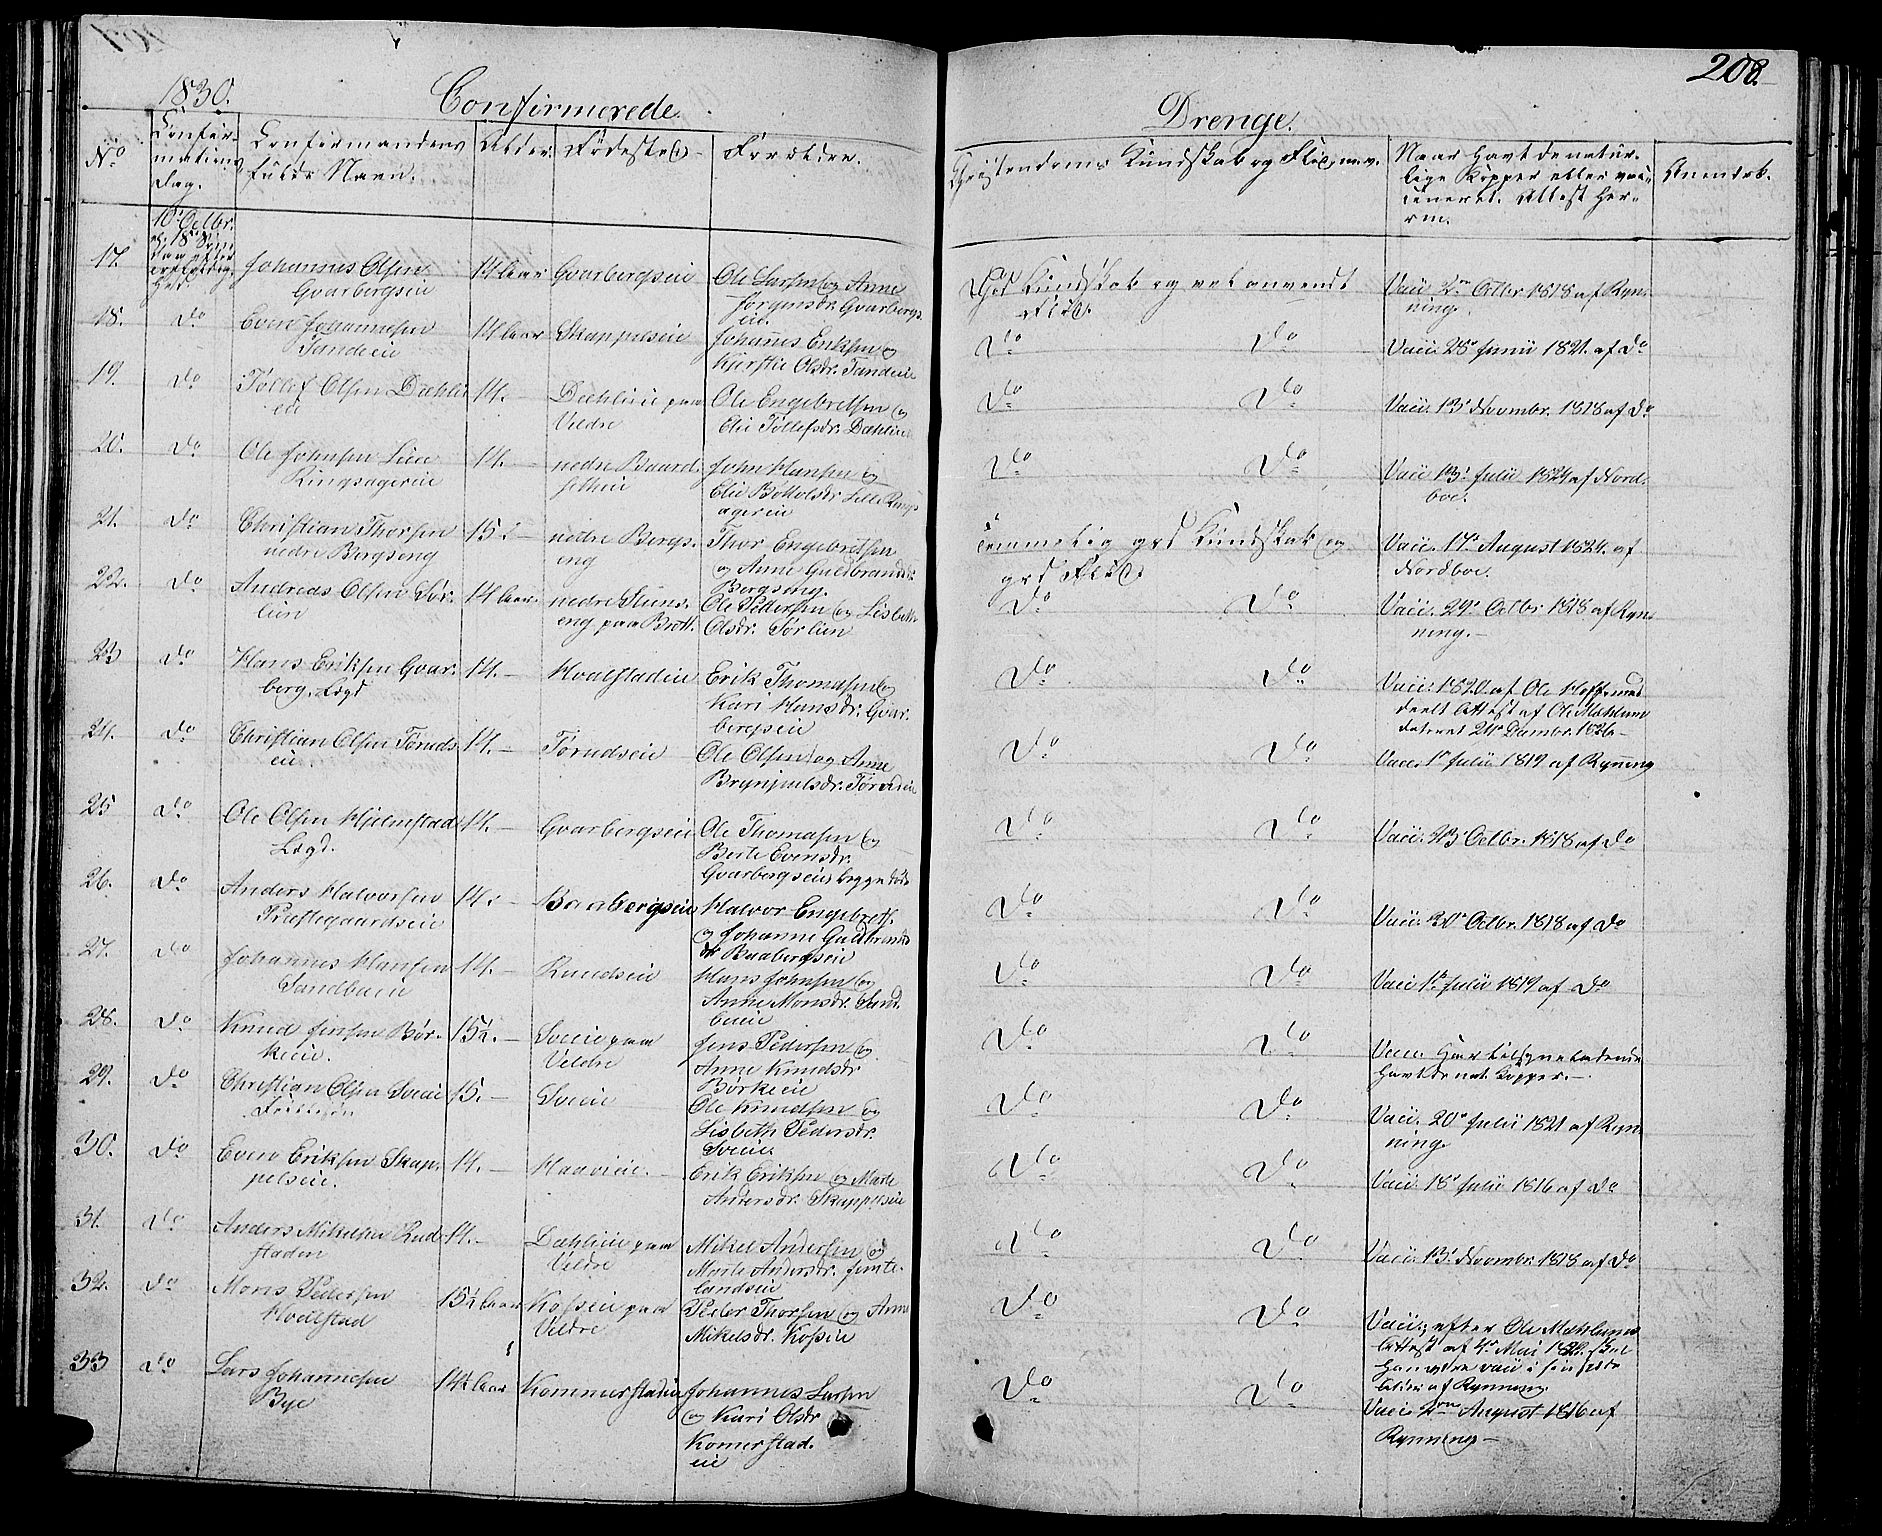 208.
1830.
Confirmerede
Drenge.
No
Confir-
mations
Dag.
Confirmandens
fulde Navn.
Alder.
Fødested
Forældre.
Christendoms Kundskab og Flid m.v.
Naar havt de natur-
lige Kopper eller vac-
cineret. Attest her-
om.
Anmærk.
17.
10de Octbr.
18de Søn-
dag efter
Johannes Olsen
Gvarbergseie
14 aar
Gvarbergseie
Ole Larsen og Anne
Jørgensdr. Gvarbergs
eie.
God Kundskab og vel anvendt
Flid.
Vacc. 2den Octbr. 1818 af Ryn-
ning.
18.
Do
Even Johannesen
Sandeie
14 aar
Skappelseie
Johannes Eriksen og
Kjerstie Olsdr. Sandeie
Do
Do
Vacc. 28de Junii 1821. af Do
19.
Do
Tollef Olsen Dæhlie
eie
14.-
Dæhlieie paa
Veldre
Ole Engebretsen og
Elie Tollefsdr. Dæhlie
Do
Do
Vacc. 13de Novmbr. 1818 af Do
20.
Do
Ole Johnsen Lille
Ringsagereie
14.-
nedre Baard-
settheie
John Hansen og
Elie Botholsdr. Lille Rings
agereie
Do
Do
Vacc. 13de Julii 1824 af Nord-
boe.
21.
Do
Christian Thorsen
nedre Bergseng
15½ -
nedre Bergs-
eng
Thor Engebretsen
og Anne Guldbrandsdr.
Bergseng.
Temmelig god Kundskab og
god Flid.
Vacc. 17de August 1824. af
Nordboe.
22.
Do
Andreas Olsen Sør-
lien
14 aar.
nedre Stens-
eng paa Brøtt.
Ole Pedersen og Lisbeth
Olsdr. Sørlien
Do
Do
Vacc. 29de Octbr. 1818 af Ryn-
ning.-
23
Do
Hans Eriksen Gvar-
berg. Lægd
14.-
Hvalstadeie
Erik Thomasen og
Kari Hansdr. Gvar-
bergseie
Do
Do
Vacc. 1820. af Ole Hoff. med-
deelt Attest af Ole Mæhlum
dateret 21de Dcmbr. 1826-
24.
Do
Christian Olsen Toruds
eie.
14.-
Torudseie
Ole Olsen og Anne
Brynjulsdr. Torudseie
Do
Do
Vacc. 1de Julii 1819 af Rynning
25
Do
Ole Olsen Hjelmstad
Lægd.
14.-
Gvarbergseie
Ole Thomasen og
Berte Evensdr.
Gvarbergseie begge døde
Do
Do
Vacc. 23de Octbr. 1818 af Do
26.
Do
Anders Halvorsen
Præstegaardseie
14. -
Baabergseie
Halvor Engebreths.
og Johanne Guldbrands
dr. Baabergseie
Do
Do
Vacc. 30de Octbr. 1818 af Do
27.
Do
Johannes Hansen
Sandbueie
14.-
Ruudseie
Hans Johnsen og
Anne Monsdr. Sand-
bueie
Do
Do
Vacc. 1de Julii 1819 af Do
28.
Do
Knud Jensen Bør-
keeie.
15½.-
Sveeie paa
Veldre
Jens Pedersen og
Anne Knudsdr.
Børkeeie
Do
Do
Vacc. Har tilsyneladende
havt de nat. Kopper.-
29.
Do
Christian Olsen Sveeie
15.-
Sveeie
Ole Knudsen og
Lisbeth Pedersdr.
Sveeie.
Do
Do
Vacc. 20de Julii 1821 af Ryn-
ning
30.
Do
Even Eriksen Skap-
pelseie.
14.-
Haaveie.
Erik Eriksen og Marte
Andersdr. Skappelseie
Do
Do
Vacc. 18de Julii 1816 af Do
31.
Do
Anders Mikelsen Rud-
staden
14.-
Dæhlieie paa
Veldre
Mikel Andersen og
Marte Andersdr. Jemte-
landseie
Do
Do
Vacc. 13de Novmbr. 1818 af Do
32.
Do
Mons Pedersen
Hvalstad
15½ aar
Kosseie paa
Veldre
Peder Thorsen og Anne
Mikelsdr. Kosseie
Do
Do
Vacc. efter Ole Mæhlums
Attest af 4de Mai skal
han være vacc. i sin spæde
Alder af Rynning.
33
Do
Lars Johannesen
Bye
14½ aar
Kommerstadeie
Johannes Larsen
og Kari Olsdr.
Komerstad-
eie
Do
Do
Vacc. 2den August 1816 af
Rynning-